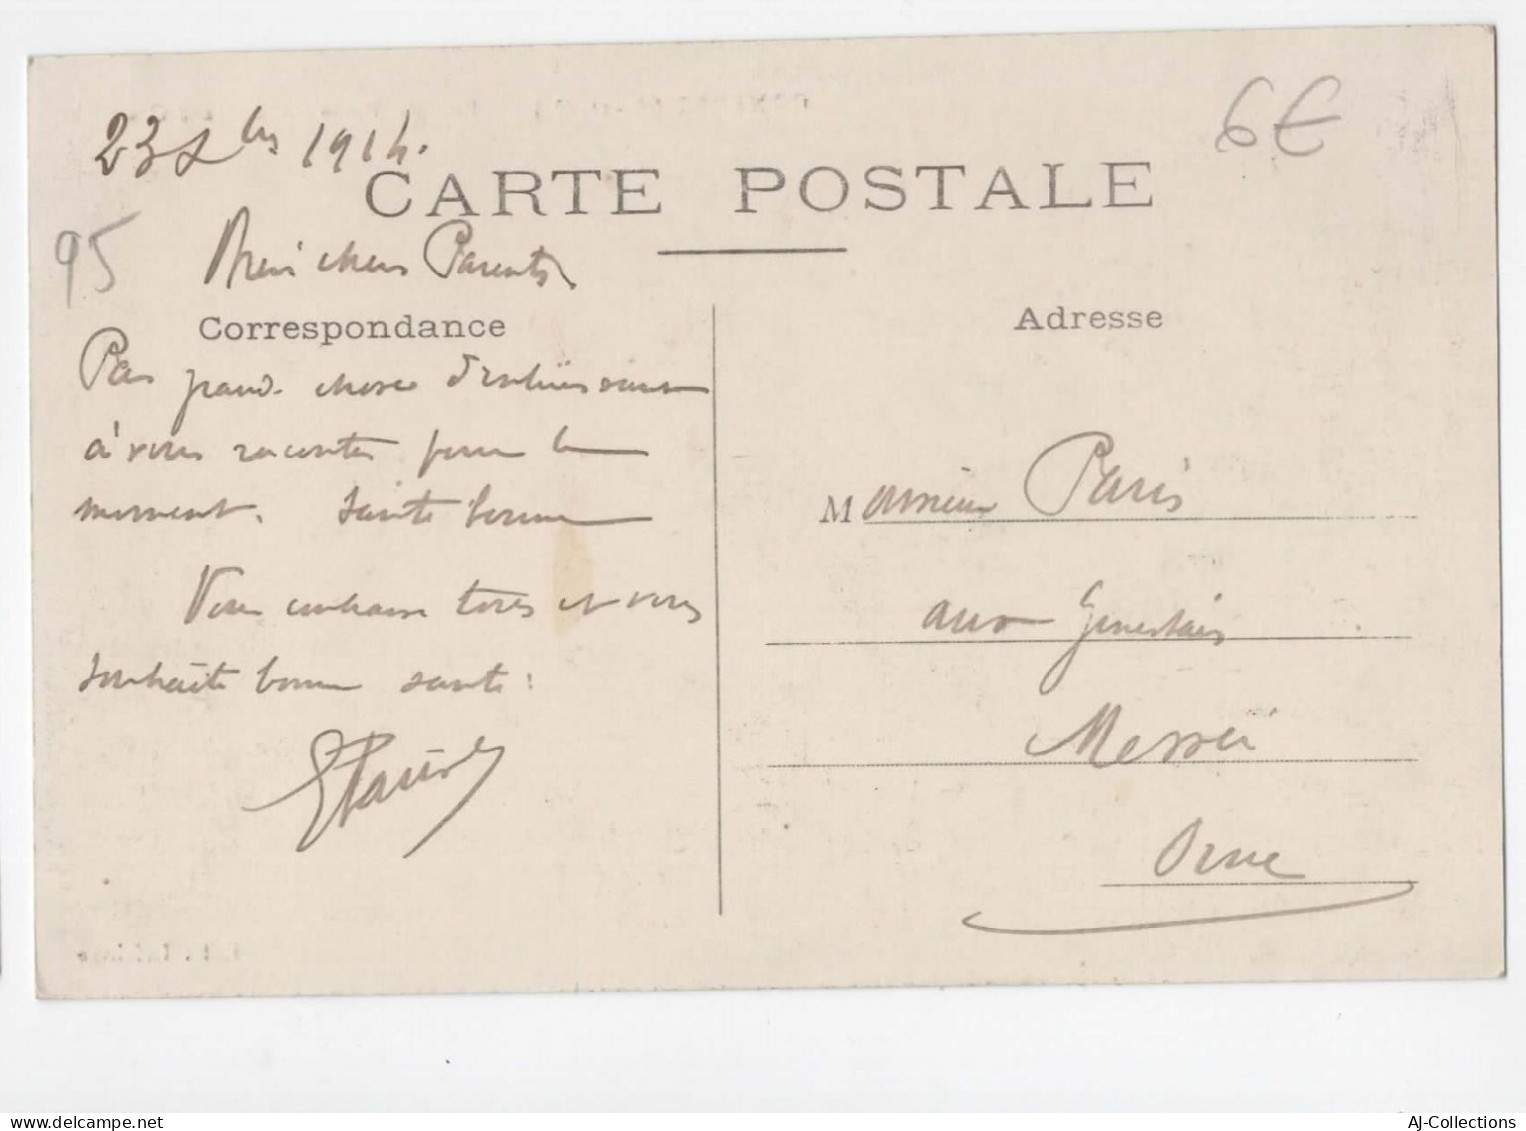 23 Xbre 1914.
6€
CARTE POSTALE
95
Mes chers Parents
Correspondance
Pas grand chose d'intéressant
à vous raconter pour le
moment. Santé bonne
Vous embrasse tous et vous
souhaite bonne santé.
Paris
Adresse
Monsieur Paris
aux
Messei
Orne
AJ-Collections